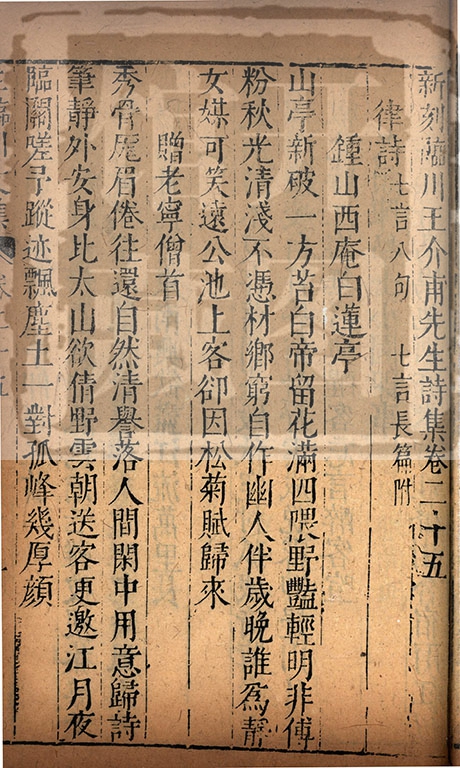 新刻臨川王介甫先生詩集卷二十五
律詩七言八句 七言長篇附
鍾山西庵白蓮亭
山亭新破一方苔白帝留花滿四隈野豔輕明非傅
粉秋光清淺不憑材鄉窮自作幽人伴歲晚誰爲靜
女媒可笑遠公池上客卻因松菊賦歸來
贈老寧僧首
秀骨厖眉倦往還自然清譽落人間閑中用意歸詩
筆靜外安身比太山欲倩野雲朝送客更邀江月夜
臨關嗟予蹤迹飄塵土一對孤峰幾厚顔